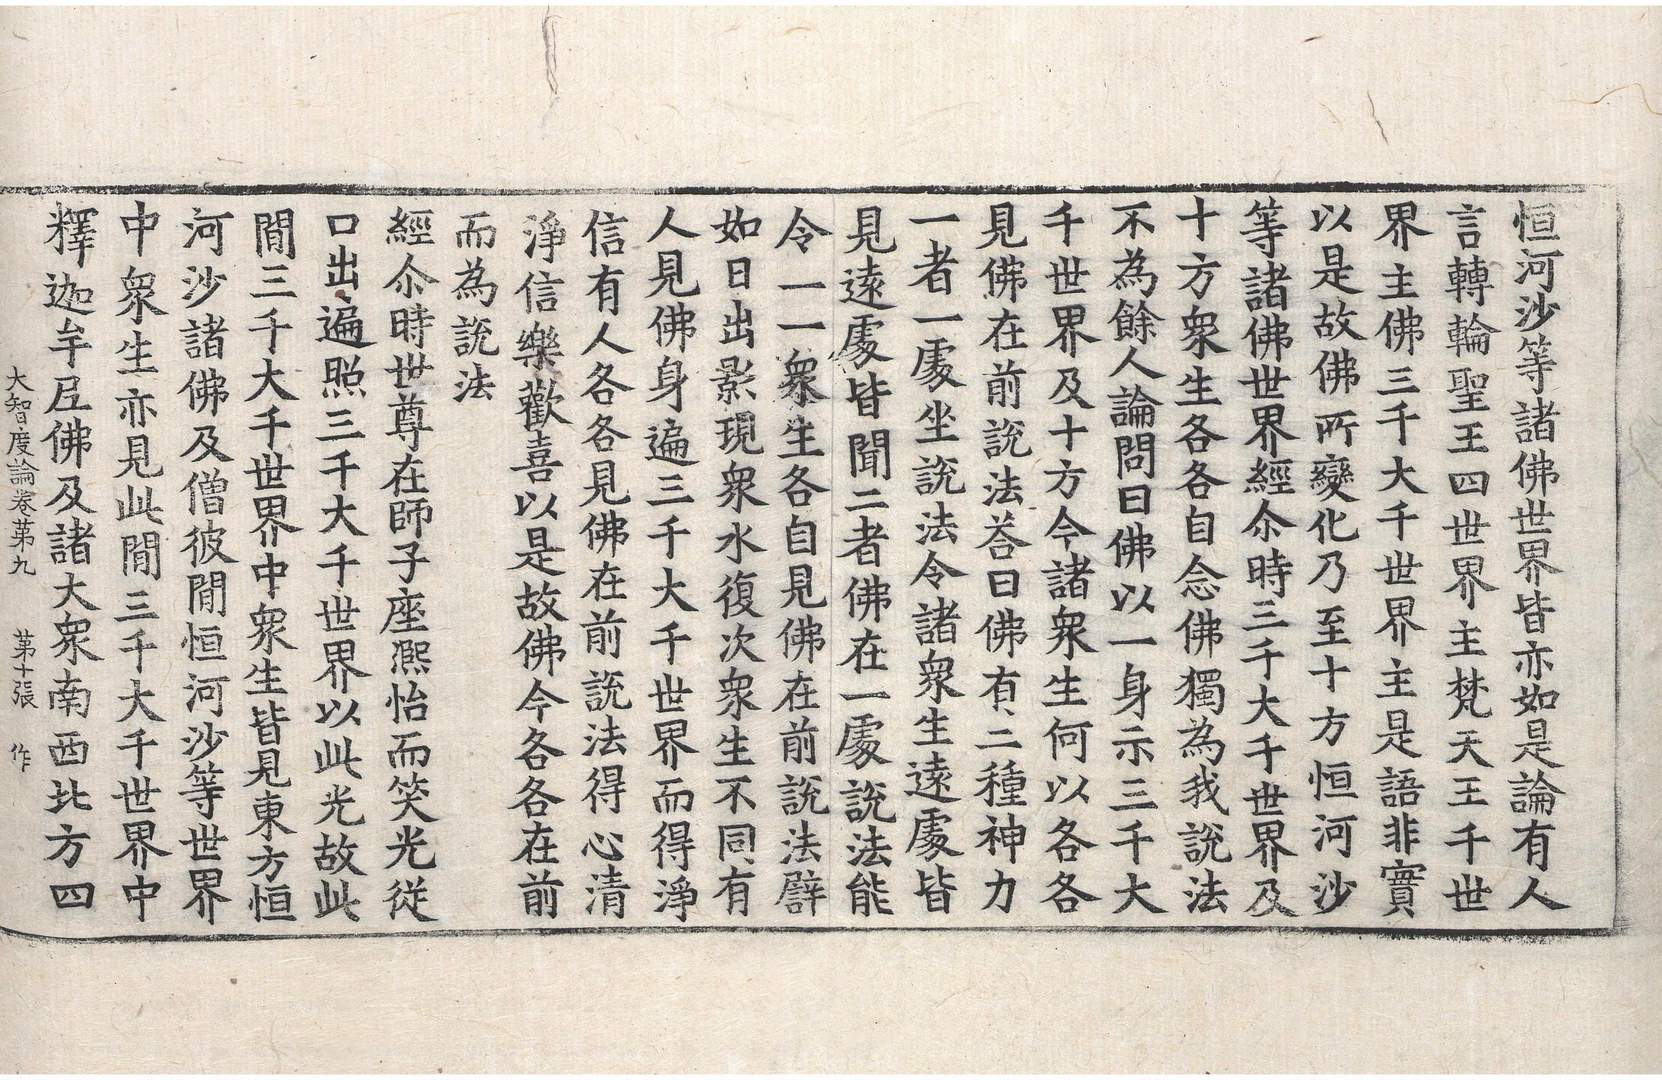 恒河沙等諸佛世界皆亦如是論有人
言轉輪聖王四世界主梵天王千世
界主佛三千大千世界主是語非實
以是故佛所變化乃至十方恒河沙
等諸佛世界經尒時三千大千世界及
十方衆生各各自念佛獨為我說法
不為餘人論問曰佛以一身示三千大
千世界及十方今諸衆生何以各各
見佛在前說法荅曰佛有二種神力
一者一處坐說法令諸衆生遠處皆
見遠處皆聞二者佛在一處說法能
令一一衆生各自見佛在前說法譬
如日出影現衆水復次衆生不同有
人見佛身遍三千大千世界而得淨
信有人各各見佛在前說法得心清
淨信樂歡喜以是故佛今各各在前
而為說法
經尒時世尊在師子座熈怡而笑光從
口出遍照三千大千世界以此光故此
間三千大千世界中衆生皆見東方恒
河沙諸佛及僧彼間恒河沙等世界
中衆生亦見此間三千大千世界中
釋迦牟尼佛及諸大衆南西北方四
大智度論卷苐九 苐十張 作